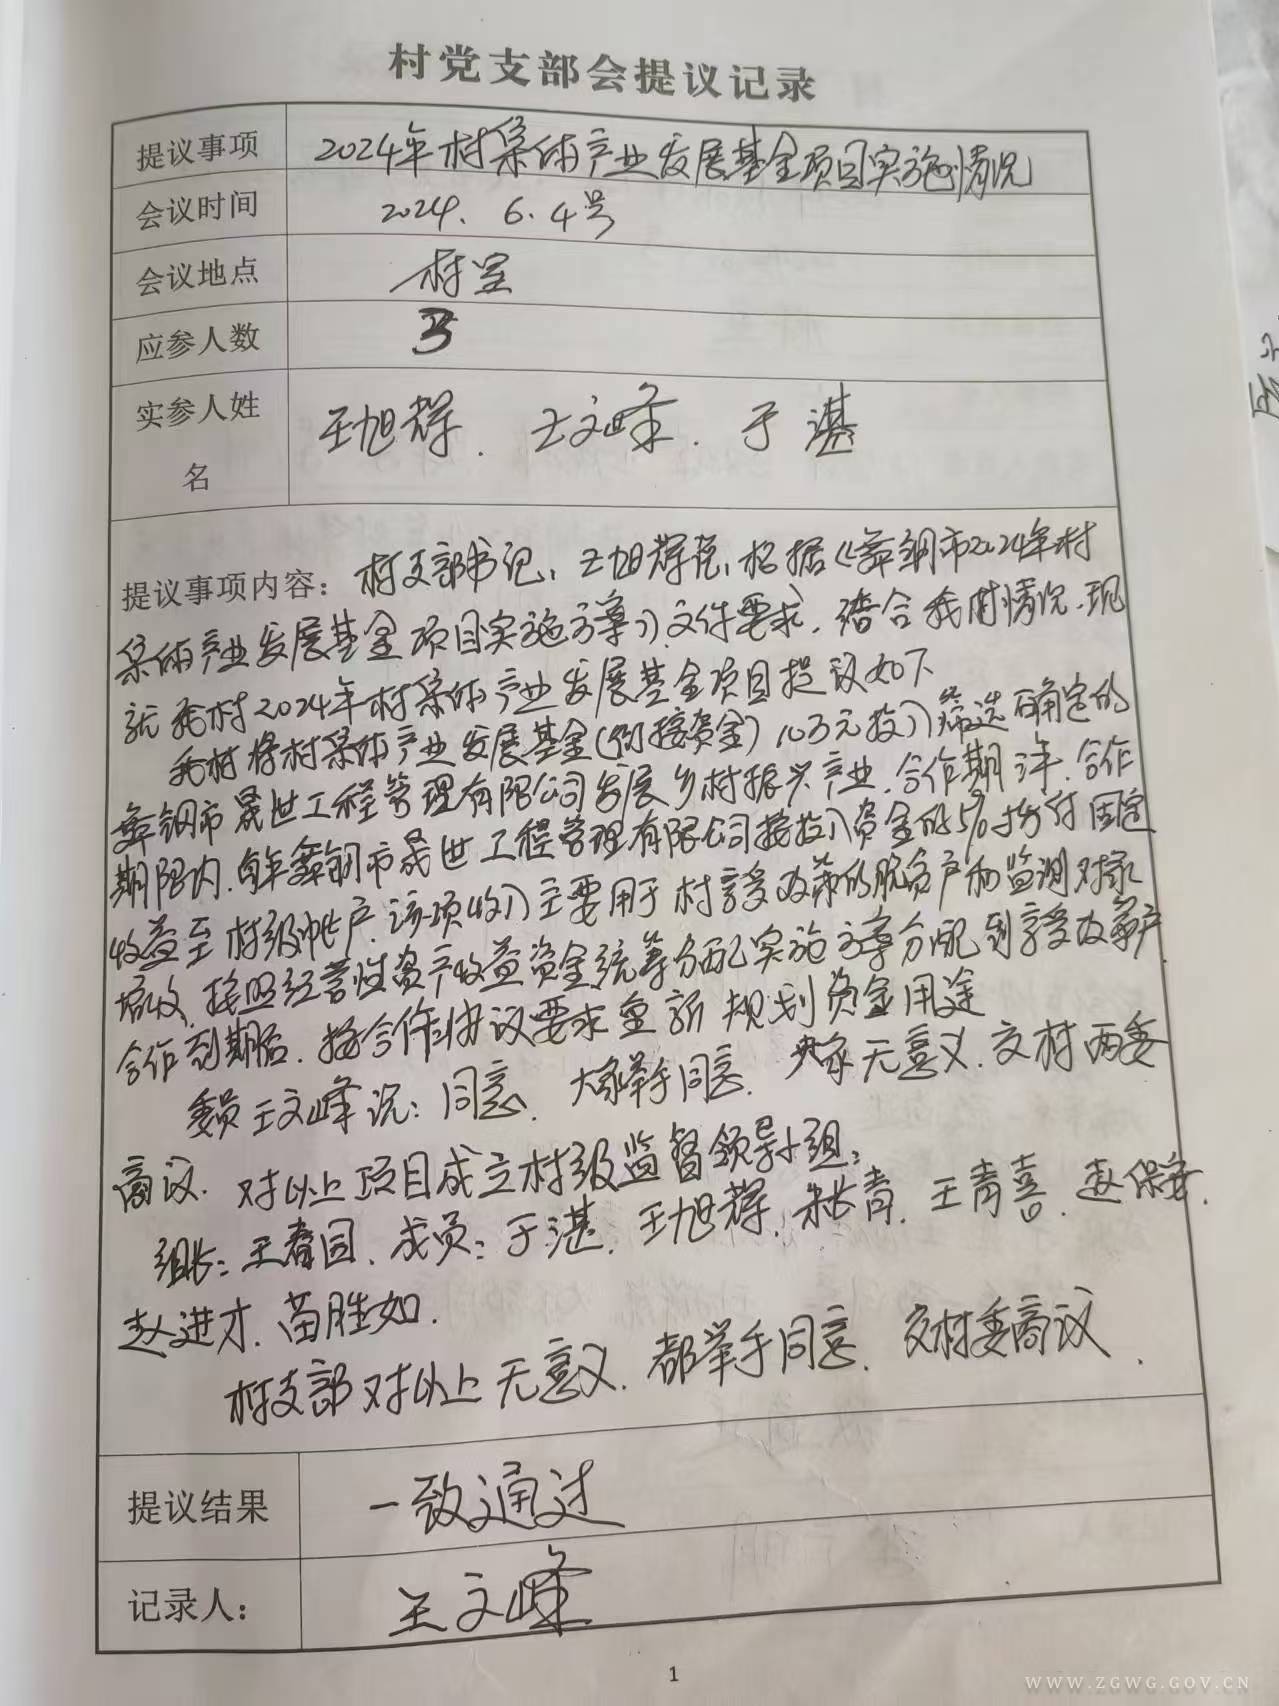 村党支部会提议记录
提议事项 2024年村集体产业发展基金项目实施情况
会议时间 2024.6.4号
会议地点 村室
应参人数 3
实参人姓名 王旭辉、王文峰、于湛
提议事项内容:村支部书记,王旭辉说,根据《舞钢市2024年村
集体产业发展基金项目实施方案》文件要求,结合我村情况,现
就我村2024年村集体产业发展基金项目提议如下
我村将村集体产业发展基金(衔接资金)10万元投入筛选确定的
舞钢市晟世工程管理有限公司发展乡村振兴产业,合作期 年,合作
期限内,每年舞钢市晟世工程管理有限公司按投入资金的5%拨付固定
收益至村级帐户,该项收入主要用于村享受政策的脱贫户和监测对象
增收,按照经营性资产收益资金统筹分配实施方案分配到享受政策户,
合作到期后,按合作协议要求重新规划资金用途
委员王文峰说:同意,大家举手同意,大家无意义,交村两委
商议,对以上项目成立村级监督领导小组:
组长:王春园,成员:于湛,王旭辉,朱长青,王青喜,赵保安,
赵进才,苗胜如.
村支部对以上无意义,都举手同意,交村委商议.
提议结果 一致通过
记录人: 王文峰
1
WWW.ZGWG.GOV.CN